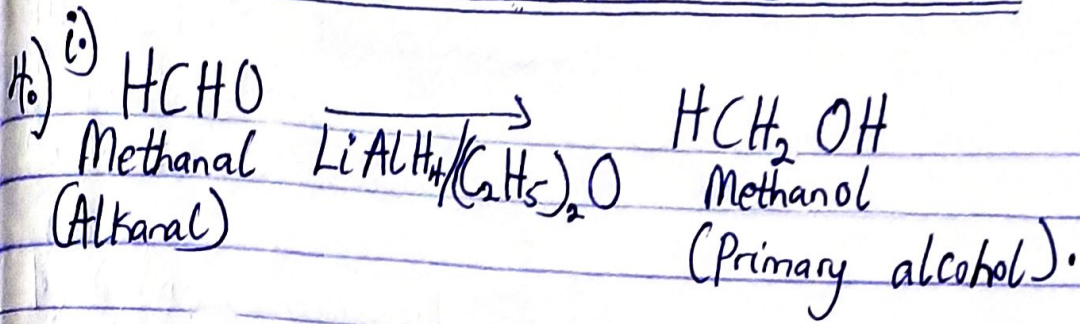 4.) i.) HCHO
LiAlH₄/(C₂H₅)₂O
HCH₂OH
Methanal
Methanol
(Alkanal)
(Primary alcohol).